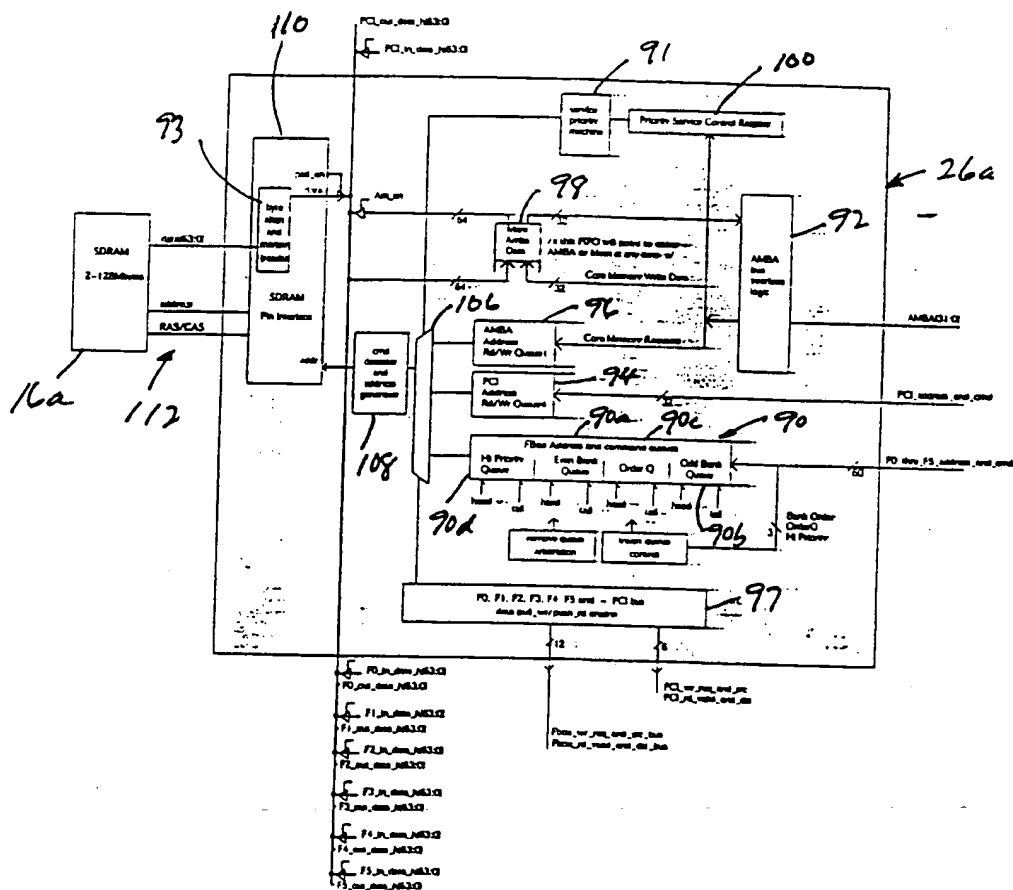 110
PCI_out_data_h(63:0)
PCI_in_data_h(63:0)
91
100
service priority machine
Priority Service Control Register
93
26a
98
92
SDRAM
2-128Mbytes
byte align and
SDRAM
Pin Interface
64
32
AMBA or Mem at any time
Core Memory Write Data
64
32
AMBA
bus
interface
logic
address
RAS/CAS
addr
106
96
AMBA
Address
Rd/Wr Queue
Core Memory Requests
AMBA(31:0)
cmd
decoder
and
address
generator
94
PCI
Address
Rd/Wr Queue
32
PCI_address_and_cmd
16a
112
108
90a
90c
90
FBus Address and command queues
Hi Priority
Queue
Even Bank
Queue
Order Q
Odd Bank
Queue
F0_thru_F5_address_and_cmd
60
head
tail
head
tail
head
tail
head
tail
90d
90b
3
Bank Order
OrderQ
Hi Priority
insert queue
control
97
F0, F1, F2, F3, F4 F5 and PCI bus
12
6
F0_in_data_h(63:0)
F0_out_data_h(63:0)
PCI_wr_req_and_src
PCI_rd_valid_and_dst
F1_in_data_h(63:0)
F1_out_data_h(63:0)
Fbus_wr_req_and_src_bus
Fbus_rd_valid_and_dst_bus
F2_in_data_h(63:0)
F2_out_data_h(63:0)
F3_in_data_h(63:0)
F3_out_data_h(63:0)
F4_in_data_h(63:0)
F4_out_data_h(63:0)
F5_in_data_h(63:0)
F5_out_data_h(63:0)